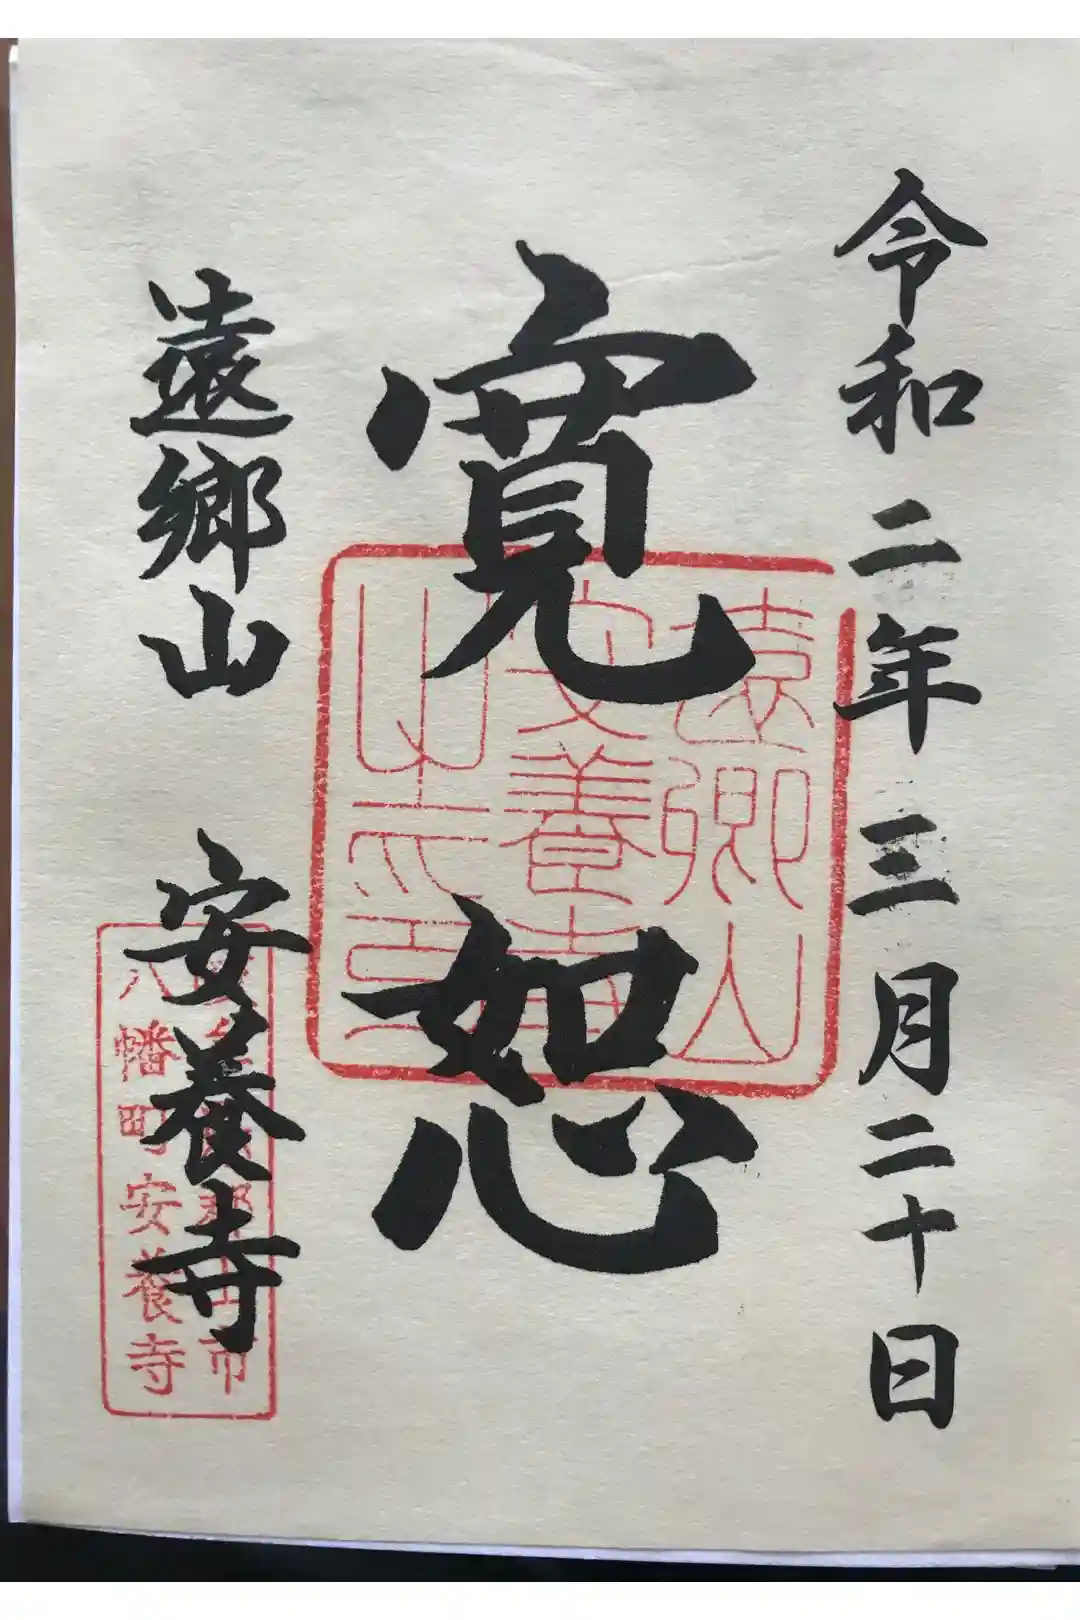 令和二年三月二十日
寛恕
遠郷山 安養寺
遠郷山
安養寺
郡上市
八幡町安養寺